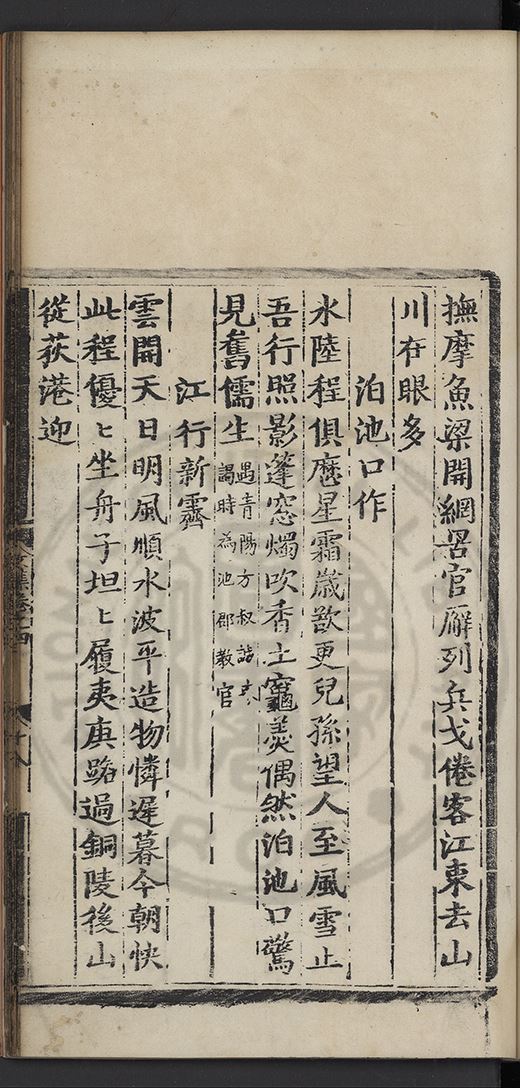 撫摩魚梁開網罟官廨列兵戈倦客江東去山
川在眼多
泊池口作
水陸程俱歷星霜歲欲更兒孫望人至風雪止
吾行照影蓬窓燭吹香土竈羮偶然泊池口驚
見舊儒生
遇青陽方叔
謁時為池郡教官
江行新霽
雲開天日明風順水波平造物憐遲暮今朝快
此程優〻坐舟子坦〻履夷庚路過銅陵後山
從荻港迎